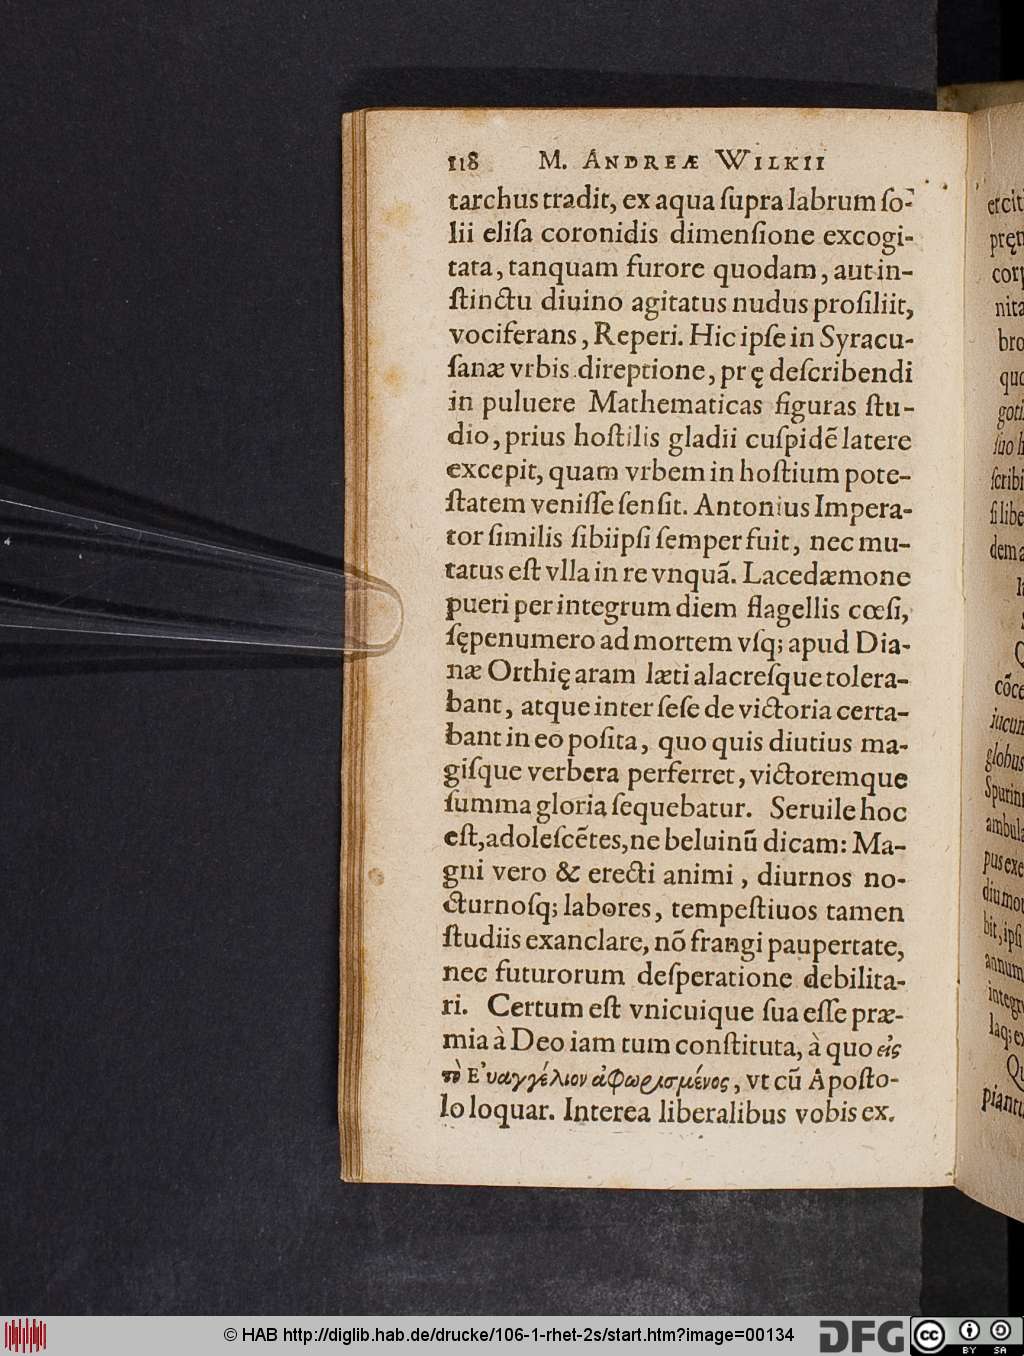 118 M. ANDREÆ WILKII
tarchus tradit, ex aqua ſupra labrum ſo-
lii eliſa coronidis dimenſione excogi-
tata, tanquam furore quodam, aut in-
ſtinctu diuino agitatus nudus proſiliit,
vociferans, Reperi. Hic ipſe in Syracu-
ſanæ vrbis direptione, prę deſcribendi
in puluere Mathematicas figuras ſtu-
dio, prius hoſtilis gladii cuſpidẽ latere
excepit, quam vrbem in hoſtium pote-
ſtatem veniſſe ſenſit. Antonius Impera-
tor ſimilis ſibiipſi ſemper fuit, nec mu-
tatus eſt vlla in re vnquã. Lacedæmone
pueri per integrum diem flagellis cœſi,
ſępenumero ad mortem vſq; apud Dia-
næ Orthię aram læti alacreſque tolera-
bant, atque inter ſeſe de victoria certa-
bant in eo poſita, quo quis diutius ma-
giſque verbera perferret, victoremque
ſumma gloria ſequebatur. Seruile hoc
eſt, adoleſcẽtes, ne beluinũ dicam: Ma-
gni vero & erecti animi, diurnos no-
cturnoſq; labores, tempeſtiuos tamen
ſtudiis exanclare, nõ frangi paupertate,
nec futurorum deſperatione debilita-
ri. Certum eſt vnicuique ſua eſſe præ-
mia à Deo iam tum conſtituta, à quo εἰς
τὸ Εὐαγγέλιον ἀφωρισμένος, vt cũ Apoſto-
lo loquar. Interea liberalibus vobis ex.
ercit
pręn
corp
nita
bro
quo
goti
ſuo h
ſcribi
ſi libe
dem a
cõce
iucun
globus
Spurinn
ambula
pus exe
diu mou
bit, ipſi
annum
integr
laq; ex
Qu
piantu
© HAB http://diglib.hab.de/drucke/106-1-rhet-2s/start.htm?image=00134
DFG
cc
BY SA